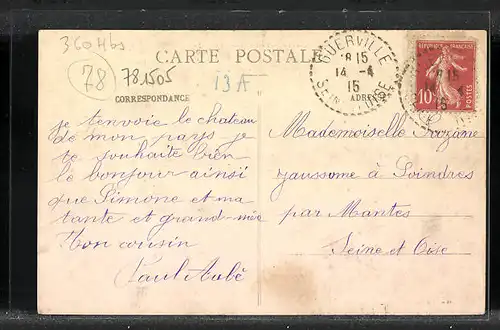 360 Hbs
78
781505
13A
CARTE POSTALE
GUERVILLE
18 15
14 -4
15
SEINE
OISE
REPUBLIQUE FRANCAISE
10
POSTES
CORRESPONDANCE
ADRESSE
je t'envoie le chateau
de mon pays je
te souhaite bien
le bonjour ainsi
que Simone et ma
tante et grand-mère
Ton cousin
Paul Aubé
Mademoiselle Suzanne
Jaussome à Soindres
par Mantes
Seine et Oise